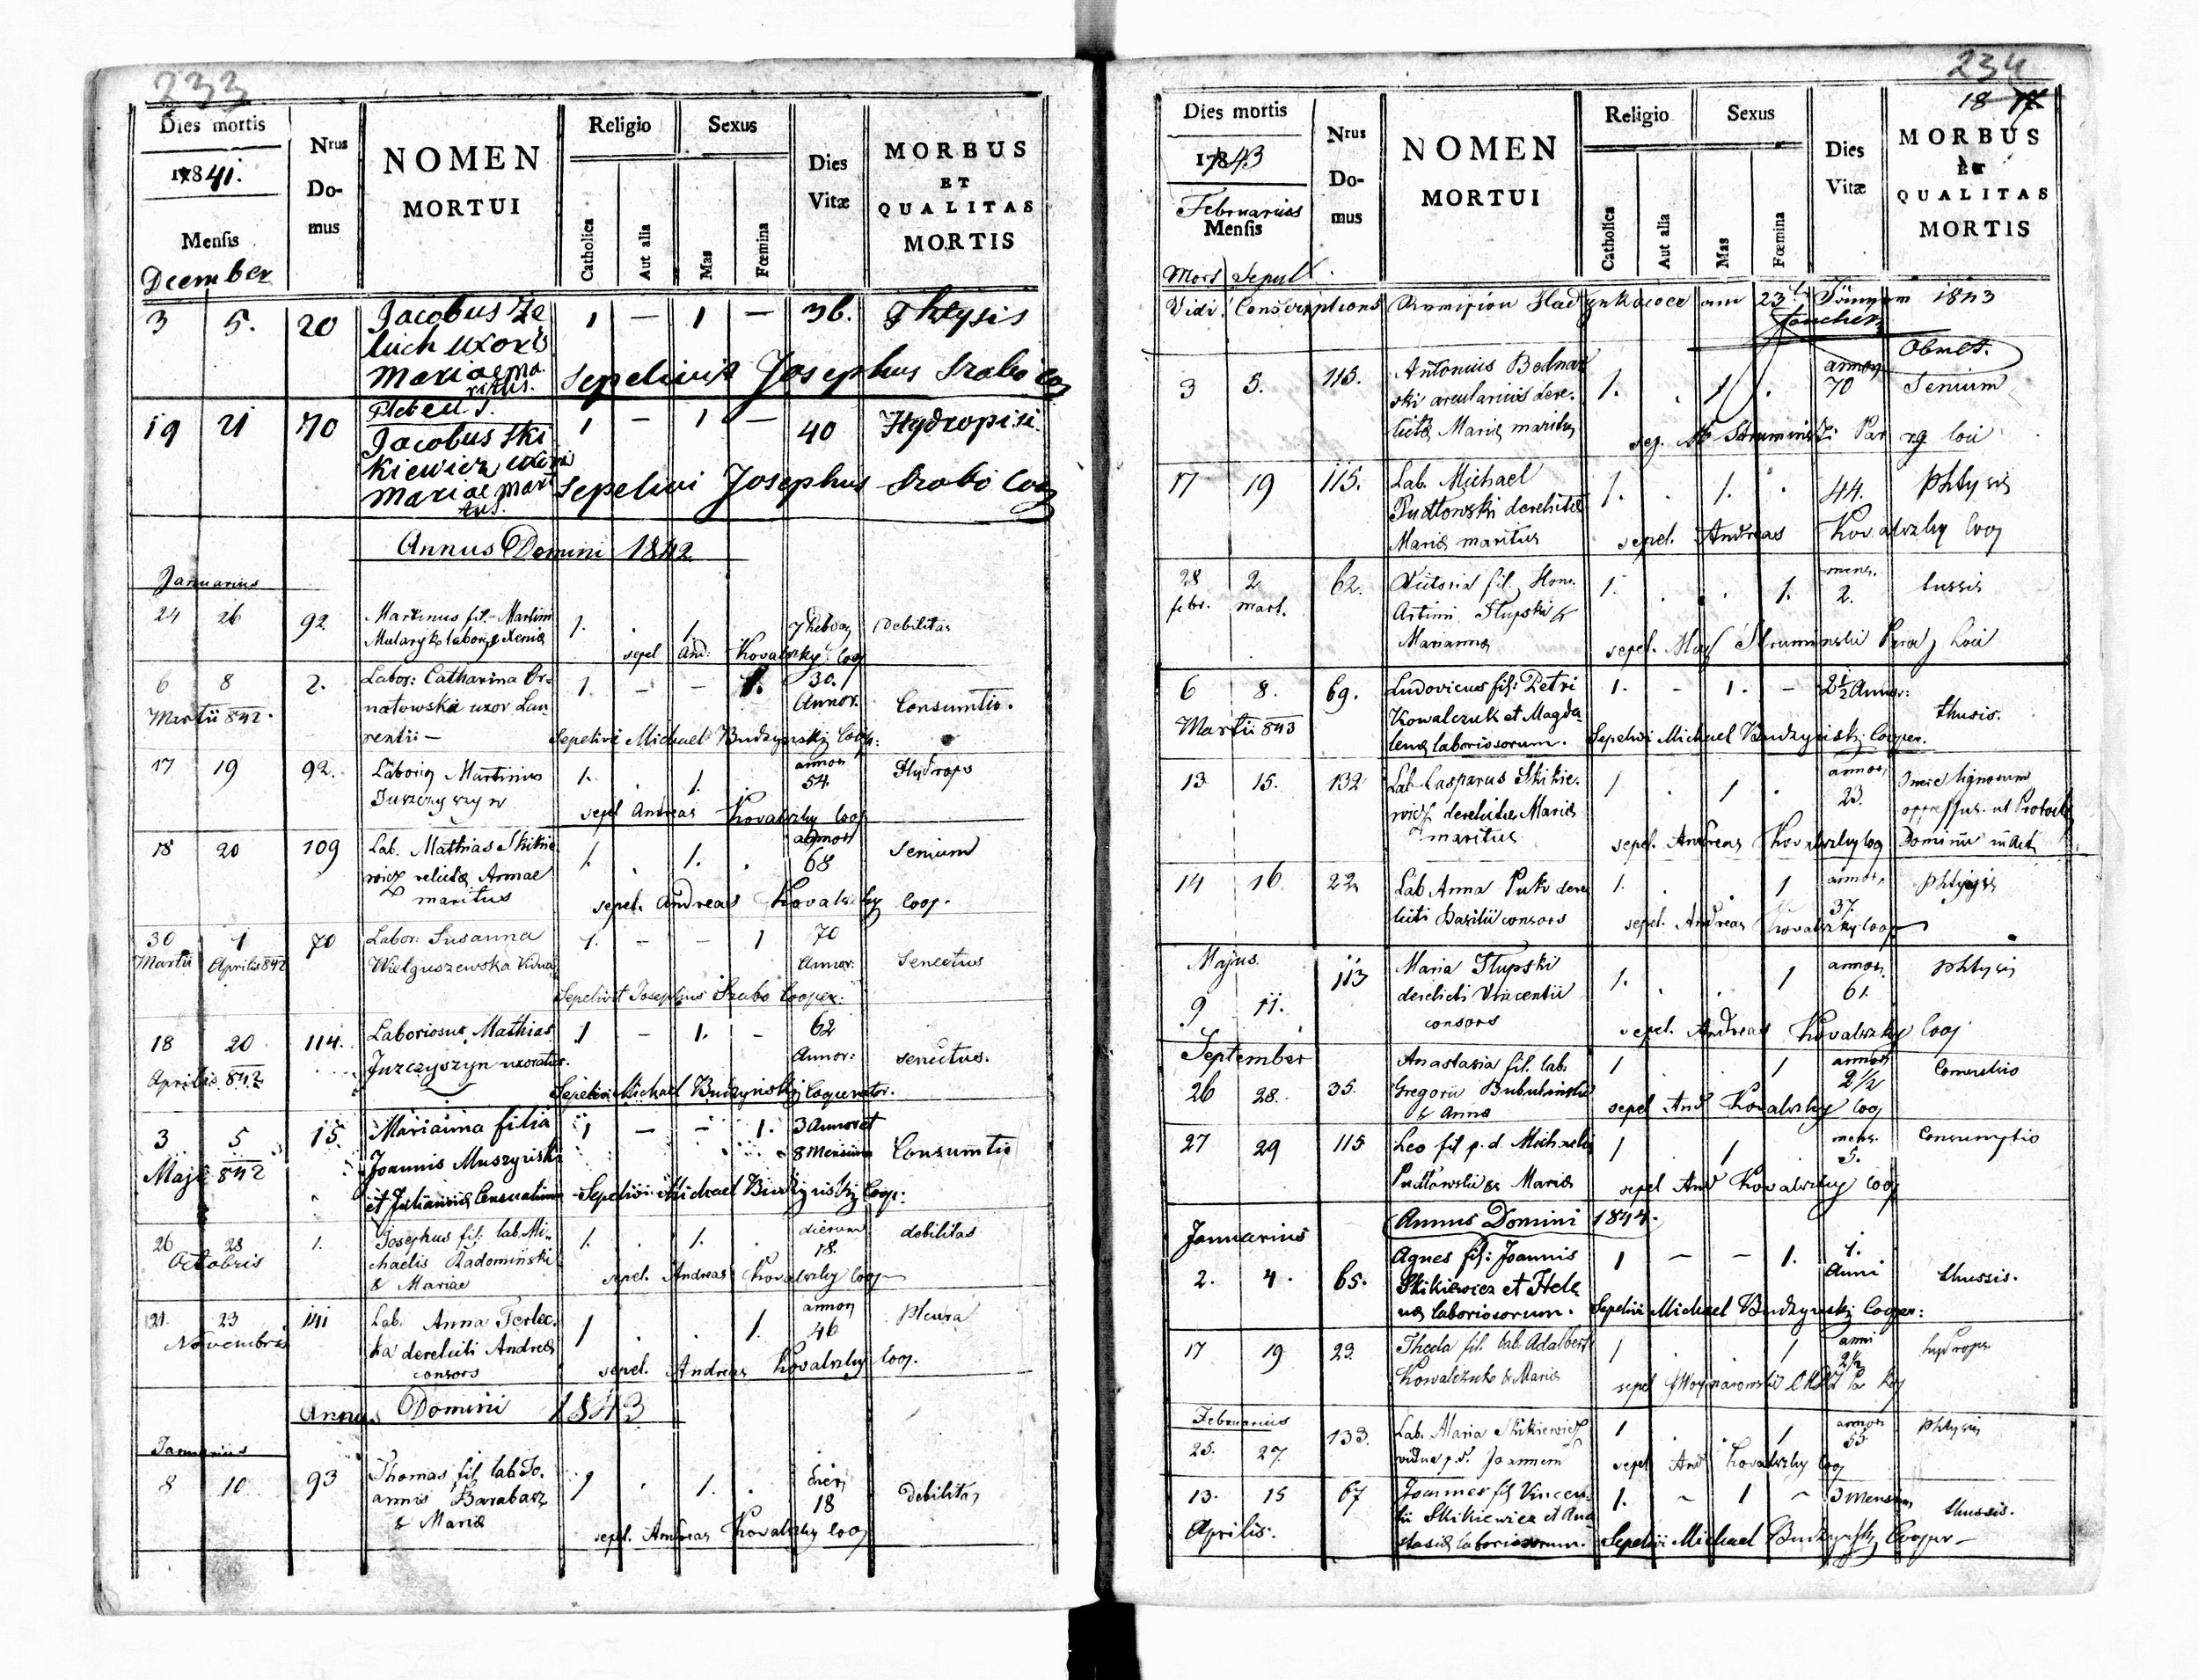 233
Dies mortis
1841.
Mensis
December
Nrus Domus
NOMEN
MORTUI
Religio
Catholica
Aut alia
Sexus
Mas
Fœmina
Dies Vitæ
MORBUS
ET
QUALITAS
MORTIS
3 5. 20 Jacobus Ze 1 — 1 — 36. Phtysis
luch uxoris
Mariae ma
ritus.
Sepelivit Josephus Szabo Coop
19 21 70 Plebeus. 1 - 1 — 40 Hydropisi.
Jacobus Ski
kiewicz uxoris
Mariae mari
tus.
Sepelivi Josephus Szabo Coop
Annus Domini 1842
Januarius
24 26 92. Martinus fil. Martini 1. . 1. 7 hebdo Debilitas
Mularyk labor. & Xeniæ
sepel And: Kovalszky Coop
6 8 2. Labor: Catharina Or- 1. - - 1. 30. Annor. Consumtio.
Martii 842. natowska uxor Lau
rentii —
Sepelivi Michael Budzynskj Coop:
17 19 92. Laborio Martinus 1. . 1. . annor 54. Hydrops
Jurczyszyn
sepel Andreas Kovalszky Coop
18 20 109 Lab. Mathias Skikie 1. . 1. . annor 68 Senium
wicz relictæ Annae
maritus
sepel. Andreas Kovalszky Coop.
30 1 70 Labor: Susanna 1. - - 1 70 Annor: Senectus
Martii Aprilis 842 Wielguszewska Vidua
Sepelivit Josephus Szabo Cooper:
18 20 114. Laboriosus Mathias 1 - 1. - 62 Annor: senectus.
Aprilis 842 Jurczyszyn uxoratus.
Sepelivi Michael Budzynskj Cooperator.
3 5 15. Marianna filia 1 — - 1. 3 Annor et 8 Mensium Consumtio
Maji 842 Joannis Muszynski
et Julianna
Sepelivi Michael Budzynskj Coop:
26 28 1. Josephus fil: lab. Mi- 1. . 1. . dierum 18. debilitas
Octobris chaelis Radominski
& Mariae
sepel. Andreas Kovalszky Coop
21. 23 141 Lab. Anna Terlec- 1 . . 1. annor 46 Pleura
Novembris ka derelicti Andreæ
consors
sepel. Andreas Kovalszky Coop.
Annus Domini 1843
Januarius
8 10 93 Thomas fil lab. Jo- 1 . 1. . dier 18 Debilitas
annis Barabasz
& Mariæ
sepel. Andreas Kovalszky Coop
234
18
Dies mortis
1843
Februarius
Mensis
Mors Sepult.
Nrus Domus
NOMEN
MORTUI
Religio
Catholica
Aut alia
Sexus
Mas
Fœmina
Dies Vitæ
MORBUS
ET
QUALITAS
MORTIS
Vidi Conscriptions 23 1843
3 5. 115. Antonius Bednar 1. . 1 . annor 70 Senium
ski arcularius dere-
lictæ Mariæ maritus
sep. Struminski
17 19 115. Lab. Michael 1. . 1. . 44. Phtysis
Pudłowski derelictæ
Mariæ maritus
sepel. Andreas Kovalszky Coop
28 2 62. Victoria fil. Hon. 1. . . 1. mens. 2. tussis
febr. mart. Słupski &
Marianna
sepel. Struminski
6 8. 69. Ludovicus fil: Petri 1. - 1. - 2½ Annor: thusis.
Martii 843 Kowalczuk et Magda
lenæ laboriosorum.
Sepelivi Michael Budzynskj Cooper.
13 15. 132 Lab Casparus Skikie- 1 . 1 . annor 23. lignorum
wicz derelictæ Mariæ oppressus ut
maritus
sepel. Andreas Kovalszky Coop
14 16 22 Lab Anna Puk dere 1. . . 1 annor. 37. phtysis
licti Basilii consors
sepel. Andreas Kovalszky Coop
Majus
9 11. 113 Maria Słupski 1. . . 1 annor. 61. phtysis
derelicti Vincentii
consors
sepel. Andreas Kovalszky Coop
September
26 28. 35. Anastasia fil. lab. 1 1 annor 2½
Gregorii
& Annæ
sepel And Kovalszky Coop
27 29 115 Leo fil p. d. Michaelis 1 . 1 mens. 5. Consumptio
Pudłowski & Mariæ
sepel And Kovalszky Coop
Annus Domini 1844.
Januarius
2. 4. 65. Agnes fil: Joannis 1 — — 1. 1. Anni thussis.
Skikiewicz et Hele
næ laboriosorum.
Sepelivi Michael Budzynskj Cooper:
17 19 23. Thecla fil. lab. Adalberti 1 . . 1 anni 2½ hydrops
Kowalczuk & Mariæ
sepel
Februarius
25. 27. 133. Lab. Maria Skikiewicz 1 . 1 annor 55 phtysis
vidua p. d. Joannem
sepel And Kovalszky Coop
13. 15 67 Joannes fil Vincen- 1. - 1 - 3 Mensium thussis.
Aprilis. tii Skikiewicz et Ana
stasiæ laboriosorum.
Sepelivi Michael Budzynskj Cooper